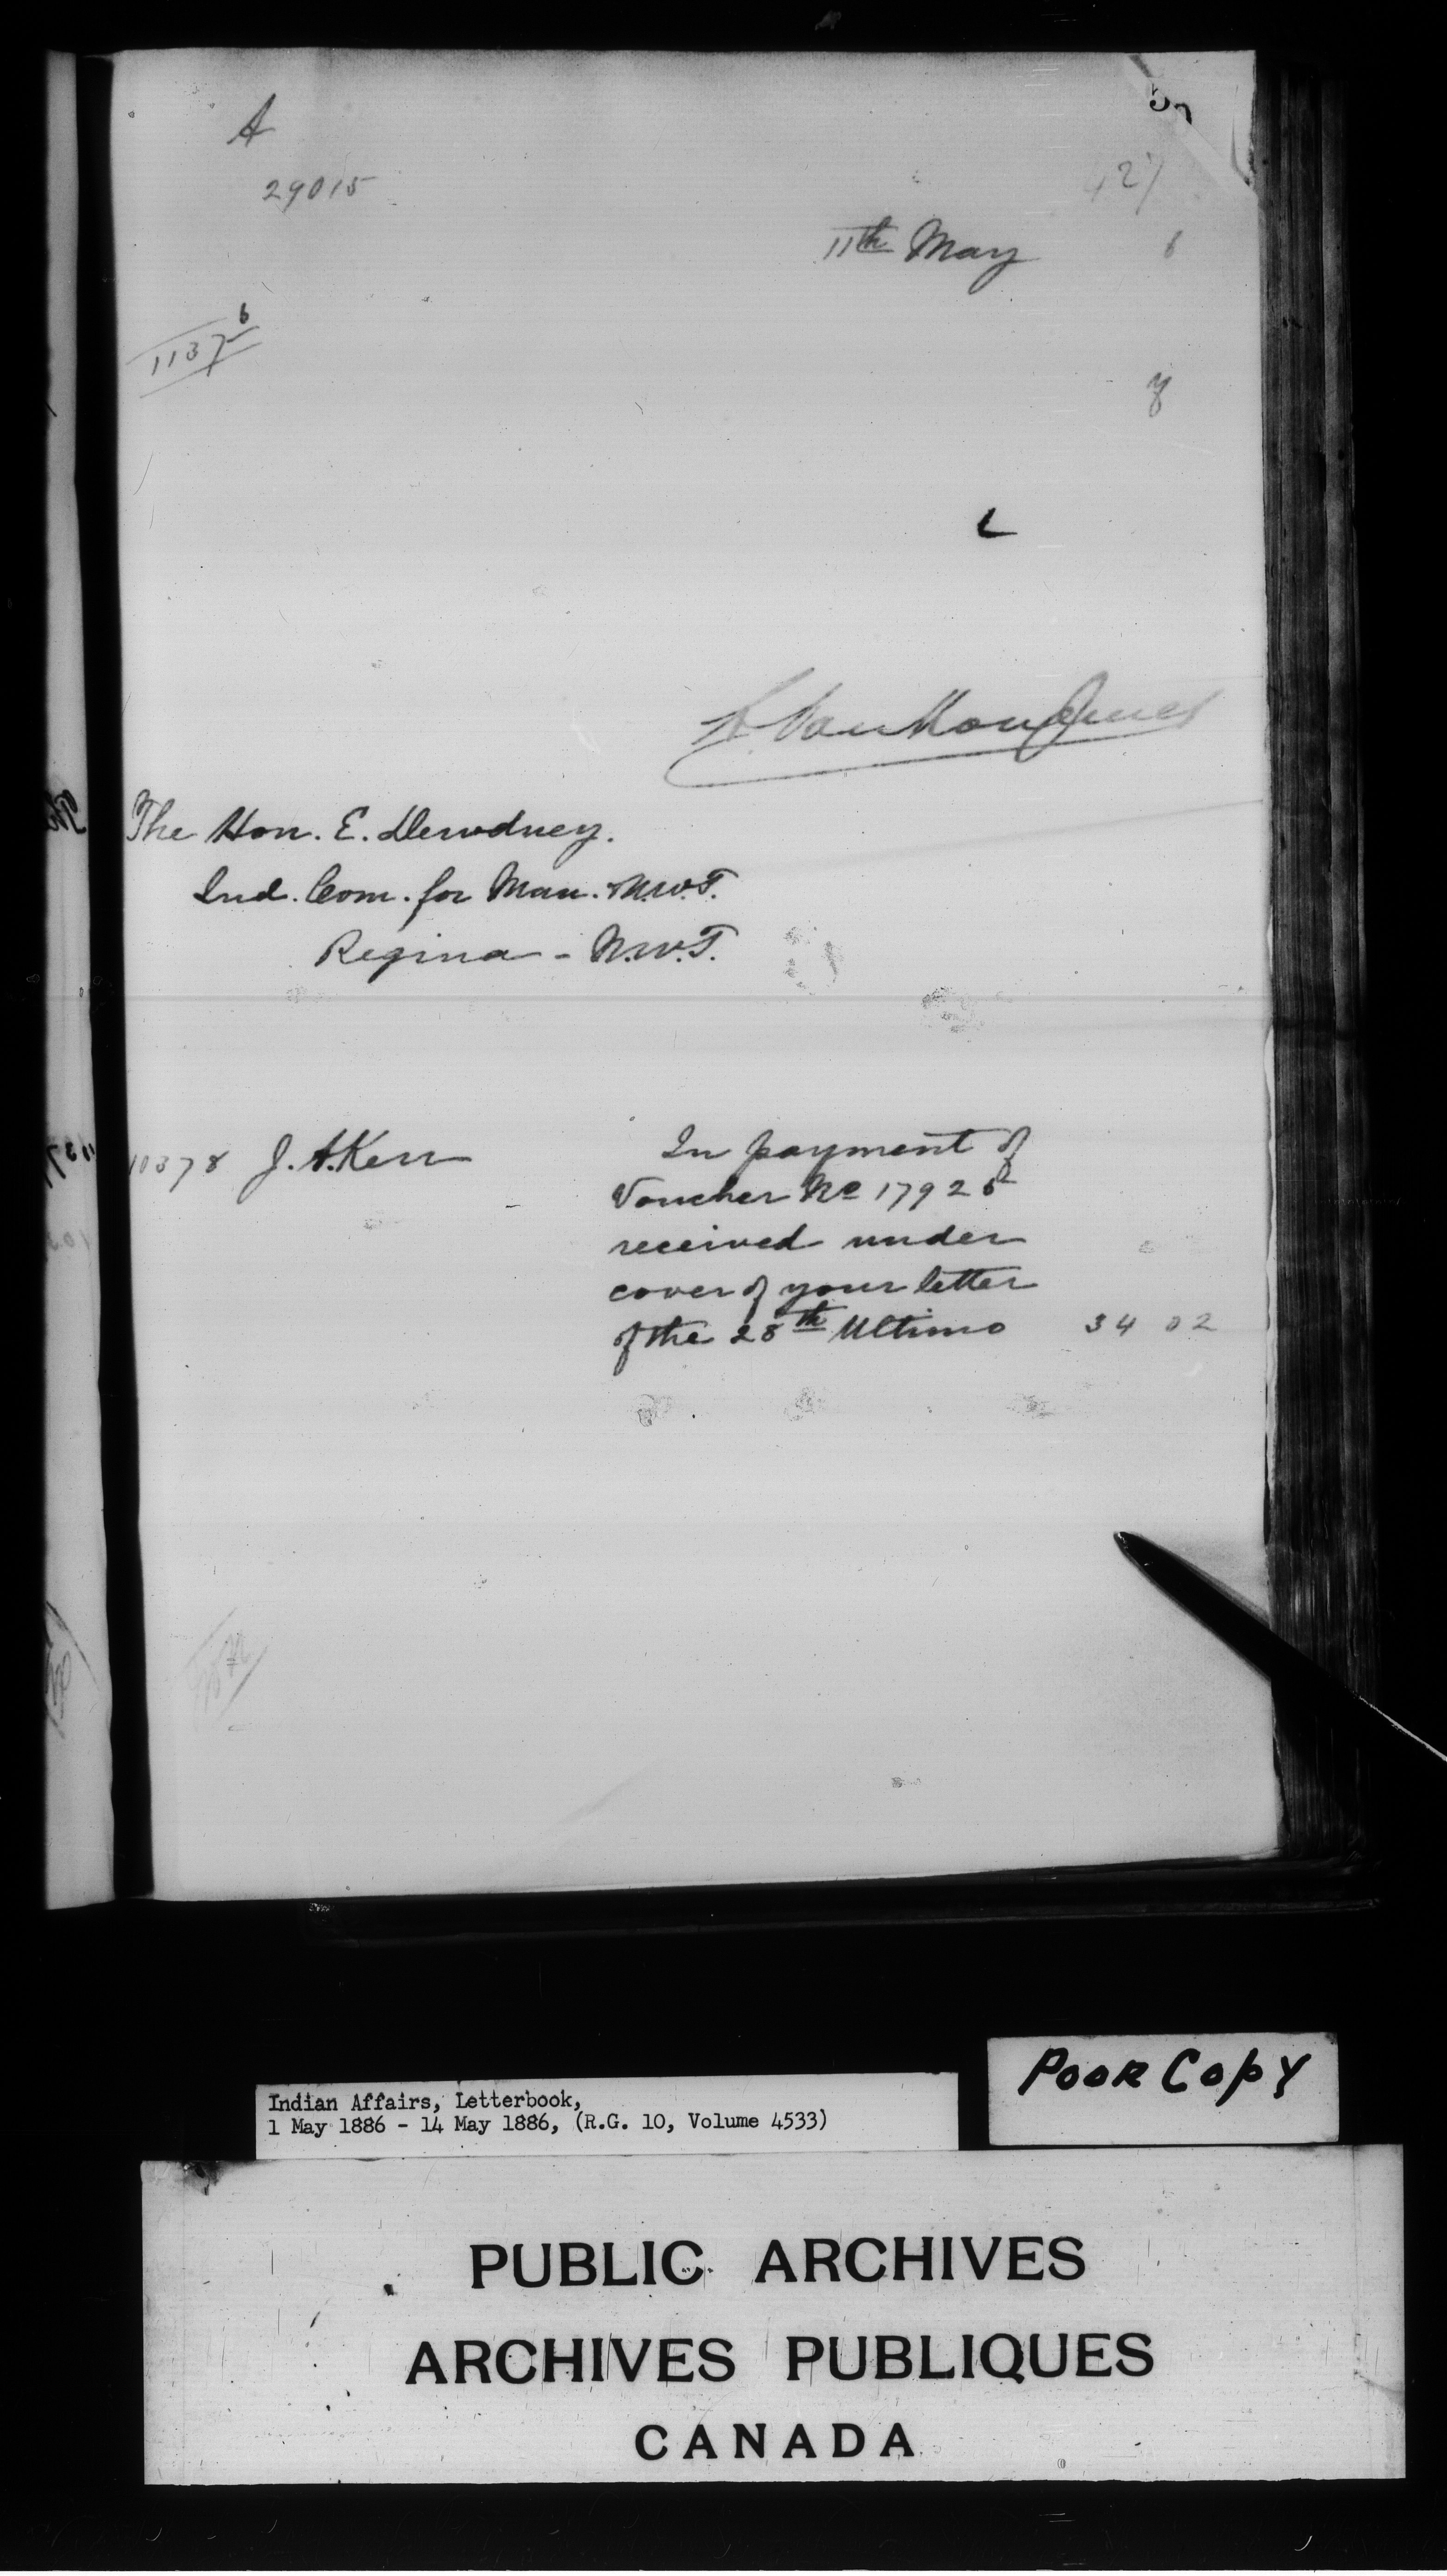 A
29015
427
11th May 6
1137 6
y
L
L. Vankoughnet
The Hon. E. Dewdney.
Ind. Com. for Man. & N.W.T.
Regina - N.W.T.
10378 J. A. Kerr In payment of
Voucher No 17925
received under
cover of your letter
of the 28th Ultimo 34 02
POOR COPY
Indian Affairs, Letterbook,
1 May 1886 - 14 May 1886, (R.G. 10, Volume 4533)
PUBLIC ARCHIVES
ARCHIVES PUBLIQUES
CANADA